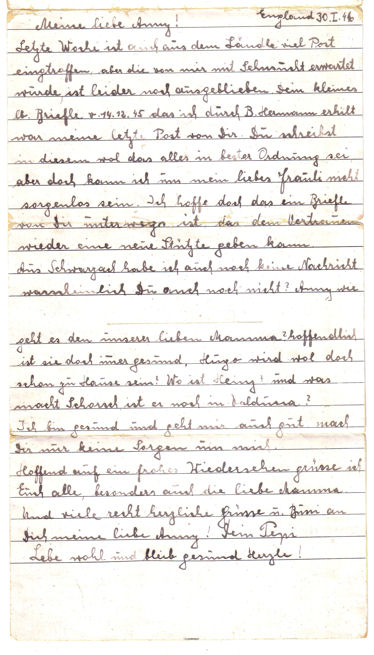 England 30.I.46
Meine liebe Anny!
Letzte Woche ist auch aus dem Ländle viel Post
eingtroffen, aber die von mir mit Sehnsucht erwartet
würde, ist leider noch ausgeblieben. Dein kleines
lb. Briefle v. 14.12.45 das ich durch B. Hermann erhilt
war meine letzte Post von Dir. Du schreibst
in diesem wol das alles in bester Ordnung sei,
aber doch kann ich um mein liebes Frauli nicht
sorgenlos sein. Ich hoffe doch das ein Briefle
von Dir unterwegs ist das dem Vertrauen
wieder eine neue Stütze geben kann.
Aus Schwarzach habe ich auch noch keine Nachricht
warscheinlich Du auch noch nicht? Anny wie
geht es den unserer lieben Mamma? hoffendlich
ist sie doch imer gesund, Hugo wird wol doch
schon zu Hause sein! Wo ist Heiny! und was
macht Schorsch ist er noch in Valduna?
Ich bin gesund und geht mir auch gut mach
Dir nur keine Sorgen um mich.
Hoffend auf ein frohes Wiedersehen grüsse ich
Euch alle, besonders auch die liebe Mamma.
Und viele recht herzliche Grüsse u. Bussi an
Dich meine liebe Anny! Dein Pepi
Lebe wohl und bleib gesund Herzle!